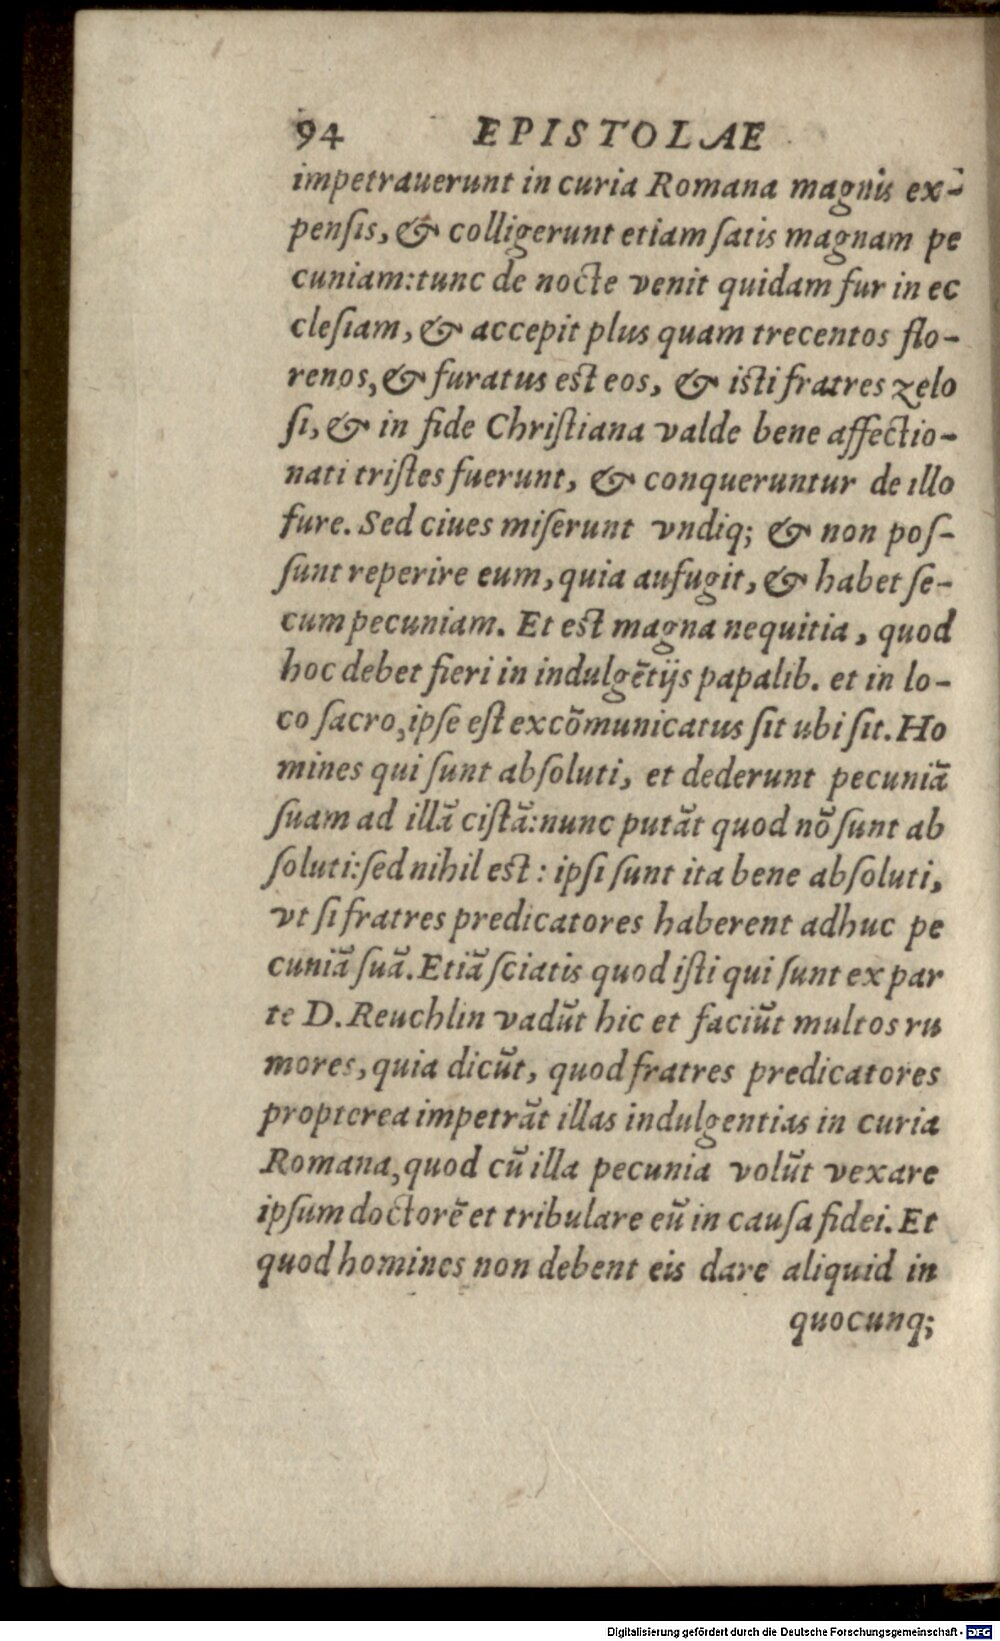 94 EPISTOLAE
impetrauerunt in curia Romana magnis ex-
penſis, & colligerunt etiam ſatis magnam pe
cuniam: tunc de nocte venit quidam fur in ec
cleſiam, & accepit plus quam trecentos flo-
renos, & furatus est eos, & isti fratres zelo
ſi, & in fide Chriſtiana valde bene affectio-
nati triſtes fuerunt, & conqueruntur de illo
fure. Sed ciues miſerunt vndiq; & non poſ-
ſunt reperire eum, quia aufugit, & habet ſe-
cum pecuniam. Et est magna nequitia, quod
hoc debet fieri in indulgẽtijs papalib. et in lo-
co ſacro, ipſe eſt excõmunicatus ſit ubi ſit. Ho
mines qui ſunt abſoluti, et dederunt pecuniã
ſuam ad illã ciſtã: nunc putãt quod nõ ſunt ab
ſoluti: ſed nihil est: ipſi ſunt ita bene abſoluti,
vt ſi fratres predicatores haberent adhuc pe
cuniã ſuã. Etiã ſciatis quod iſti qui ſunt ex par
te D. Reuchlin vadũt hic et faciũt multos ru
mores, quia dicũt, quod fratres predicatores
propterea impetrãt illas indulgentias in curia
Romana, quod cũ illa pecunia volũt vexare
ipſum doctorẽ et tribulare eũ in cauſa fidei. Et
quod homines non debent eis dare aliquid in
quocunq;
Digitalisierung gefördert durch die Deutsche Forschungsgemeinschaft - DFG